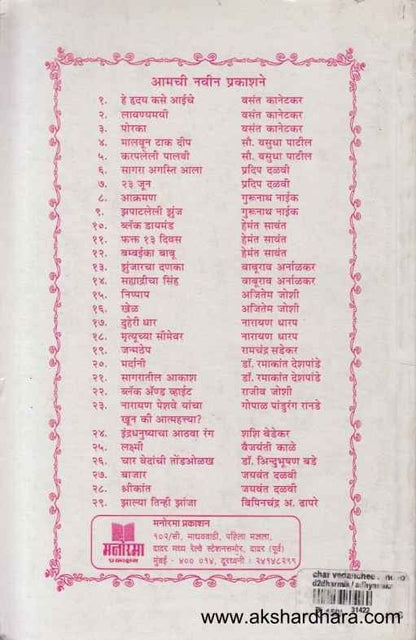 आमची नवीन प्रकाशने
१. हे हृदय कसे आईचे वसंत कानेटकर
२. लावण्यमयी वसंत कानेटकर
३. पोरका वसंत कानेटकर
४. मालवून टाक दीप सौ. वसुधा पाटील
५. करपलेली पालवी सौ. वसुधा पाटील
६. सागरा अगस्ति आला प्रदिप दळवी
७. २३ जून प्रदिप दळवी
८. आक्रमण गुरूनाथ नाईक
९. झपाटलेली झुंज गुरूनाथ नाईक
१०. ब्लॅक डायमंड हेमंत सावंत
११. फक्त १३ दिवस हेमंत सावंत
१२. बम्बईका बाबू हेमंत सावंत
१३. झुंजारचा दणका बाबूराव अर्नाळकर
१४. सह्याद्रीचा सिंह बाबूराव अर्नाळकर
१५. निष्पाप अजितेम जोशी
१६. खेळ अजितेम जोशी
१७. दुहेरी धार नारायण धारप
१८. मृत्यूच्या सीमेवर नारायण धारप
१९. जन्मठेप रामचंद्र सडेकर
२०. मर्दानी डॉ. रमाकांत देशपांडे
२१. सागरातील आकाश डॉ. रमाकांत देशपांडे
२२. ब्लॅक ॲण्ड व्हाईट राजीव जोशी
२३. नारायण पेशवे यांचा गोपाळ पांडुरंग रानडे
खून की आत्महत्या?
२४. इंद्रधनुष्याचा आठवा रंग शशि बेडेकर
२५. लक्ष्मी वैजयंती काळे
२६. चार वेदांची तोंडओळख डॉ. बिन्दुभूषण बडे
२७. बाजार जयवंत दळवी
२८. श्रीकांत जयवंत दळवी
२९. झाल्या तिन्ही झांजा बिपिनचंद्र अ. ढापरे
मनोरमा प्रकाशन
१०२/सी, माधववाडी, पहिला मजला,
दादर मध्य रेल्वे स्टेशनसमोर, दादर (पूर्व)
मुंबई - ४०० ०१४, दूरध्वनी : २४१४८२९९
मनोरमा
प्रकाशन
31422
www.akshardhara.com